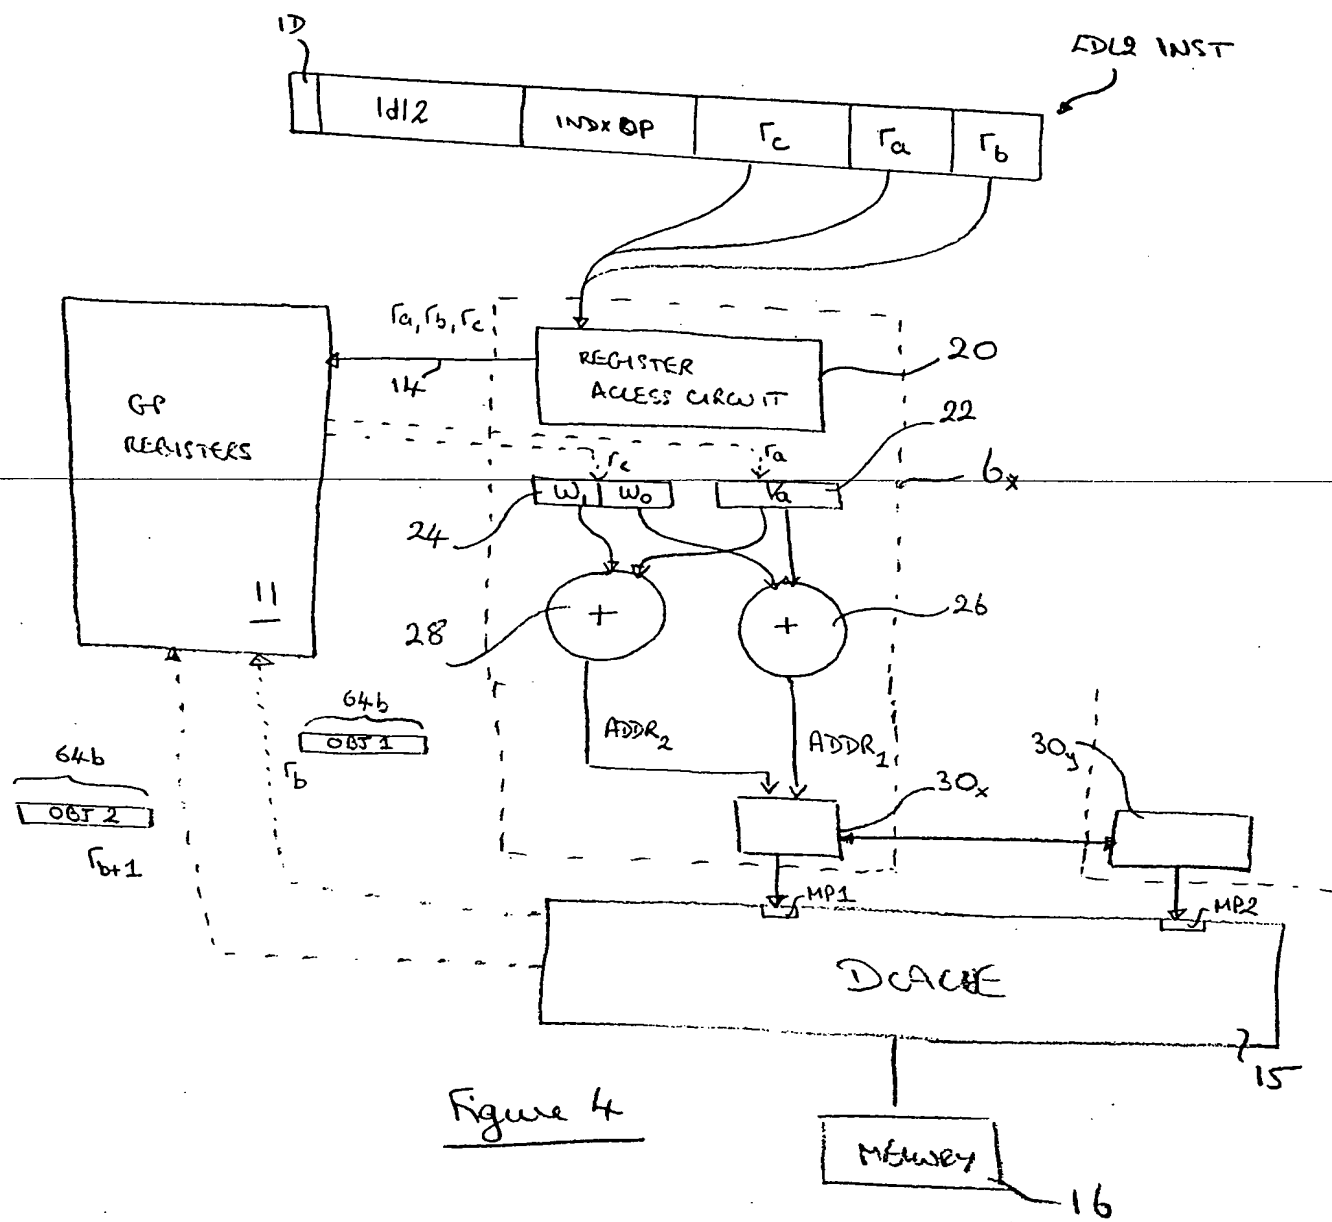 1D
LDL2 INST
ldl2
INDX OP
rc
ra
rb
ra, rb, rc
14
REGISTER
ACCESS CIRCUIT
20
GP
REGISTERS
11
22
rc
ra
6x
W1
W0
Va
24
28
+
+
26
64b
OBJ 1
rb
64b
OBJ 2
rb+1
ADDR2
ADDR1
30x
30y
MP1
MP2
DCACHE
15
Figure 4
MEMORY
16